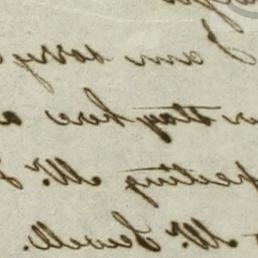 I am sorry
stay here a
pecting Mr.
Mr. Sewell.